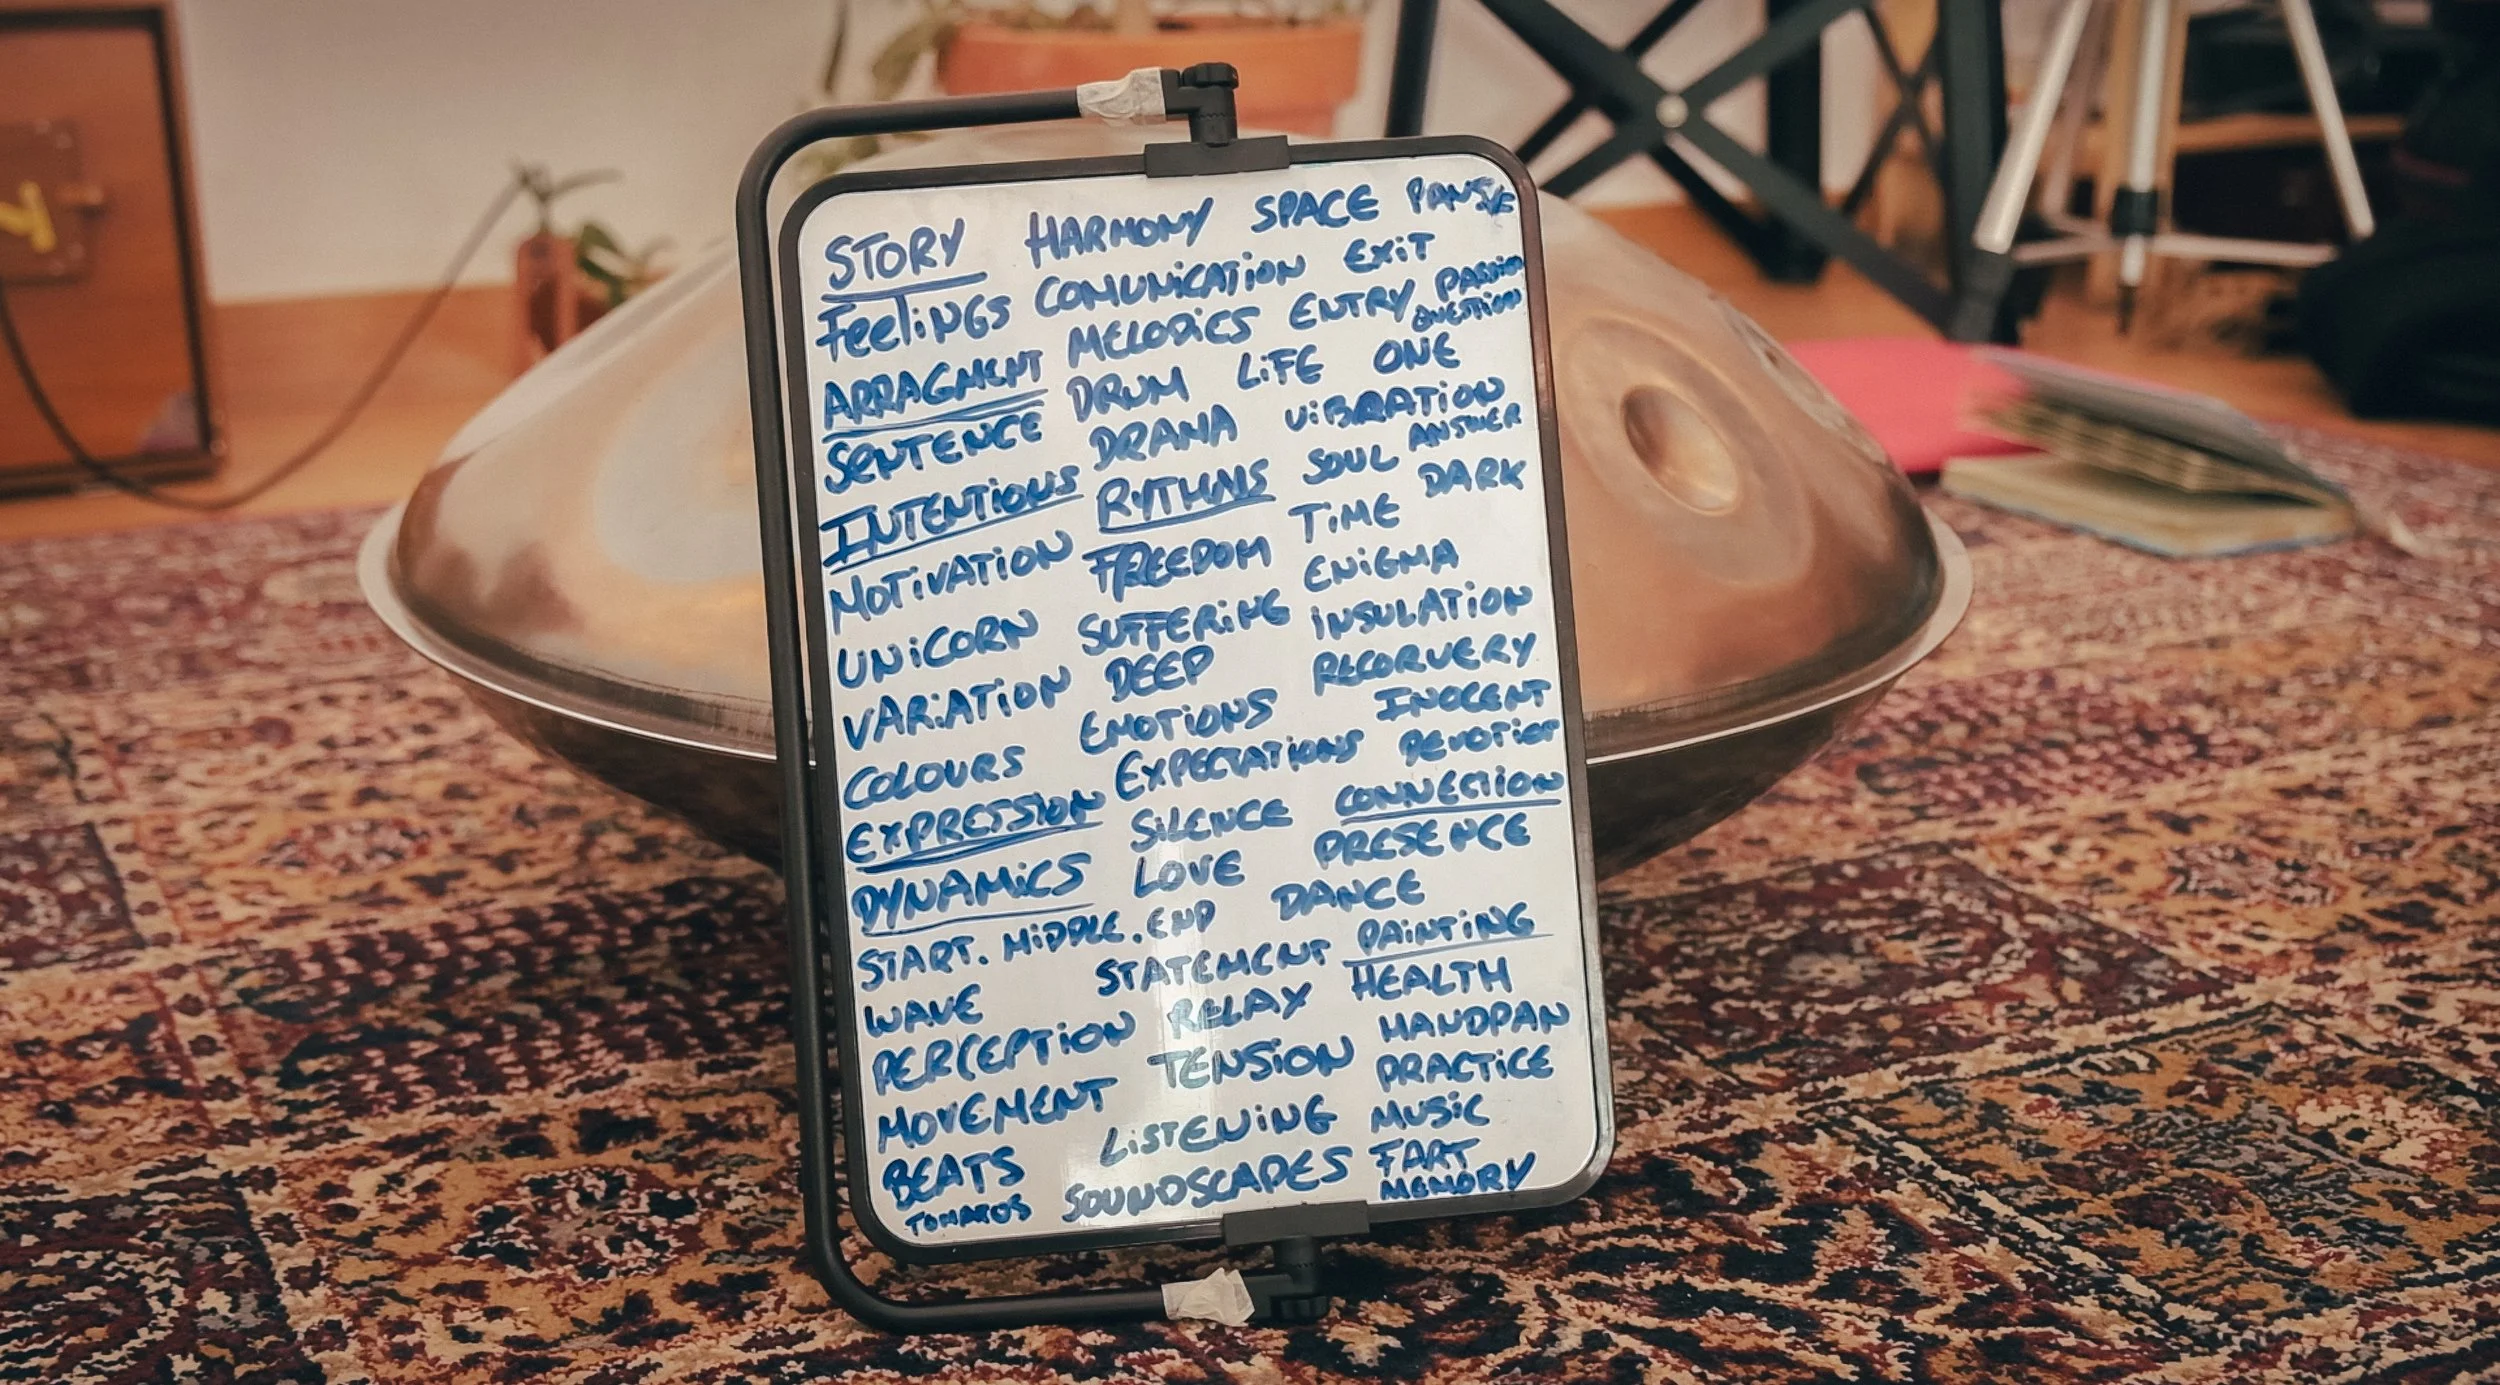 STORY HARMONY SPACE PAUSE
FeeliNGS COMUNiCATiON EXiT
ARRAGMENT MELODiCS ENTRY PASSION
QUESTION
SENTENCE DRUM LiFE ONE
INTENTiOUS DRAMA ViBRATiON
MOTiVATiON RYTHMS SOUL ANSWER
UNiCORN FREEDOM TiME DARK
VARiATiON SUFFERiNG ENiGMA
COLOURS DEEP iNSULATiON
EXPRESSiON EMOTiONS RECORVERY
DYNAMiCS EXPECTATiONS INOCENT
START. MiDDLE. END SiLENCE DEVOTiON
WAVE LOVE CONNECTiON
PERCEPTiON DANCE PRESENCE
MOVEMENT STATEMENT PAiNTiNG
BEATS RELAX HEALTH
TOMATOS TENSiON HANDPAN
LiSTENiNG PRACTiCE
SOUNDSCAPES MUSiC
FART
MEMORY